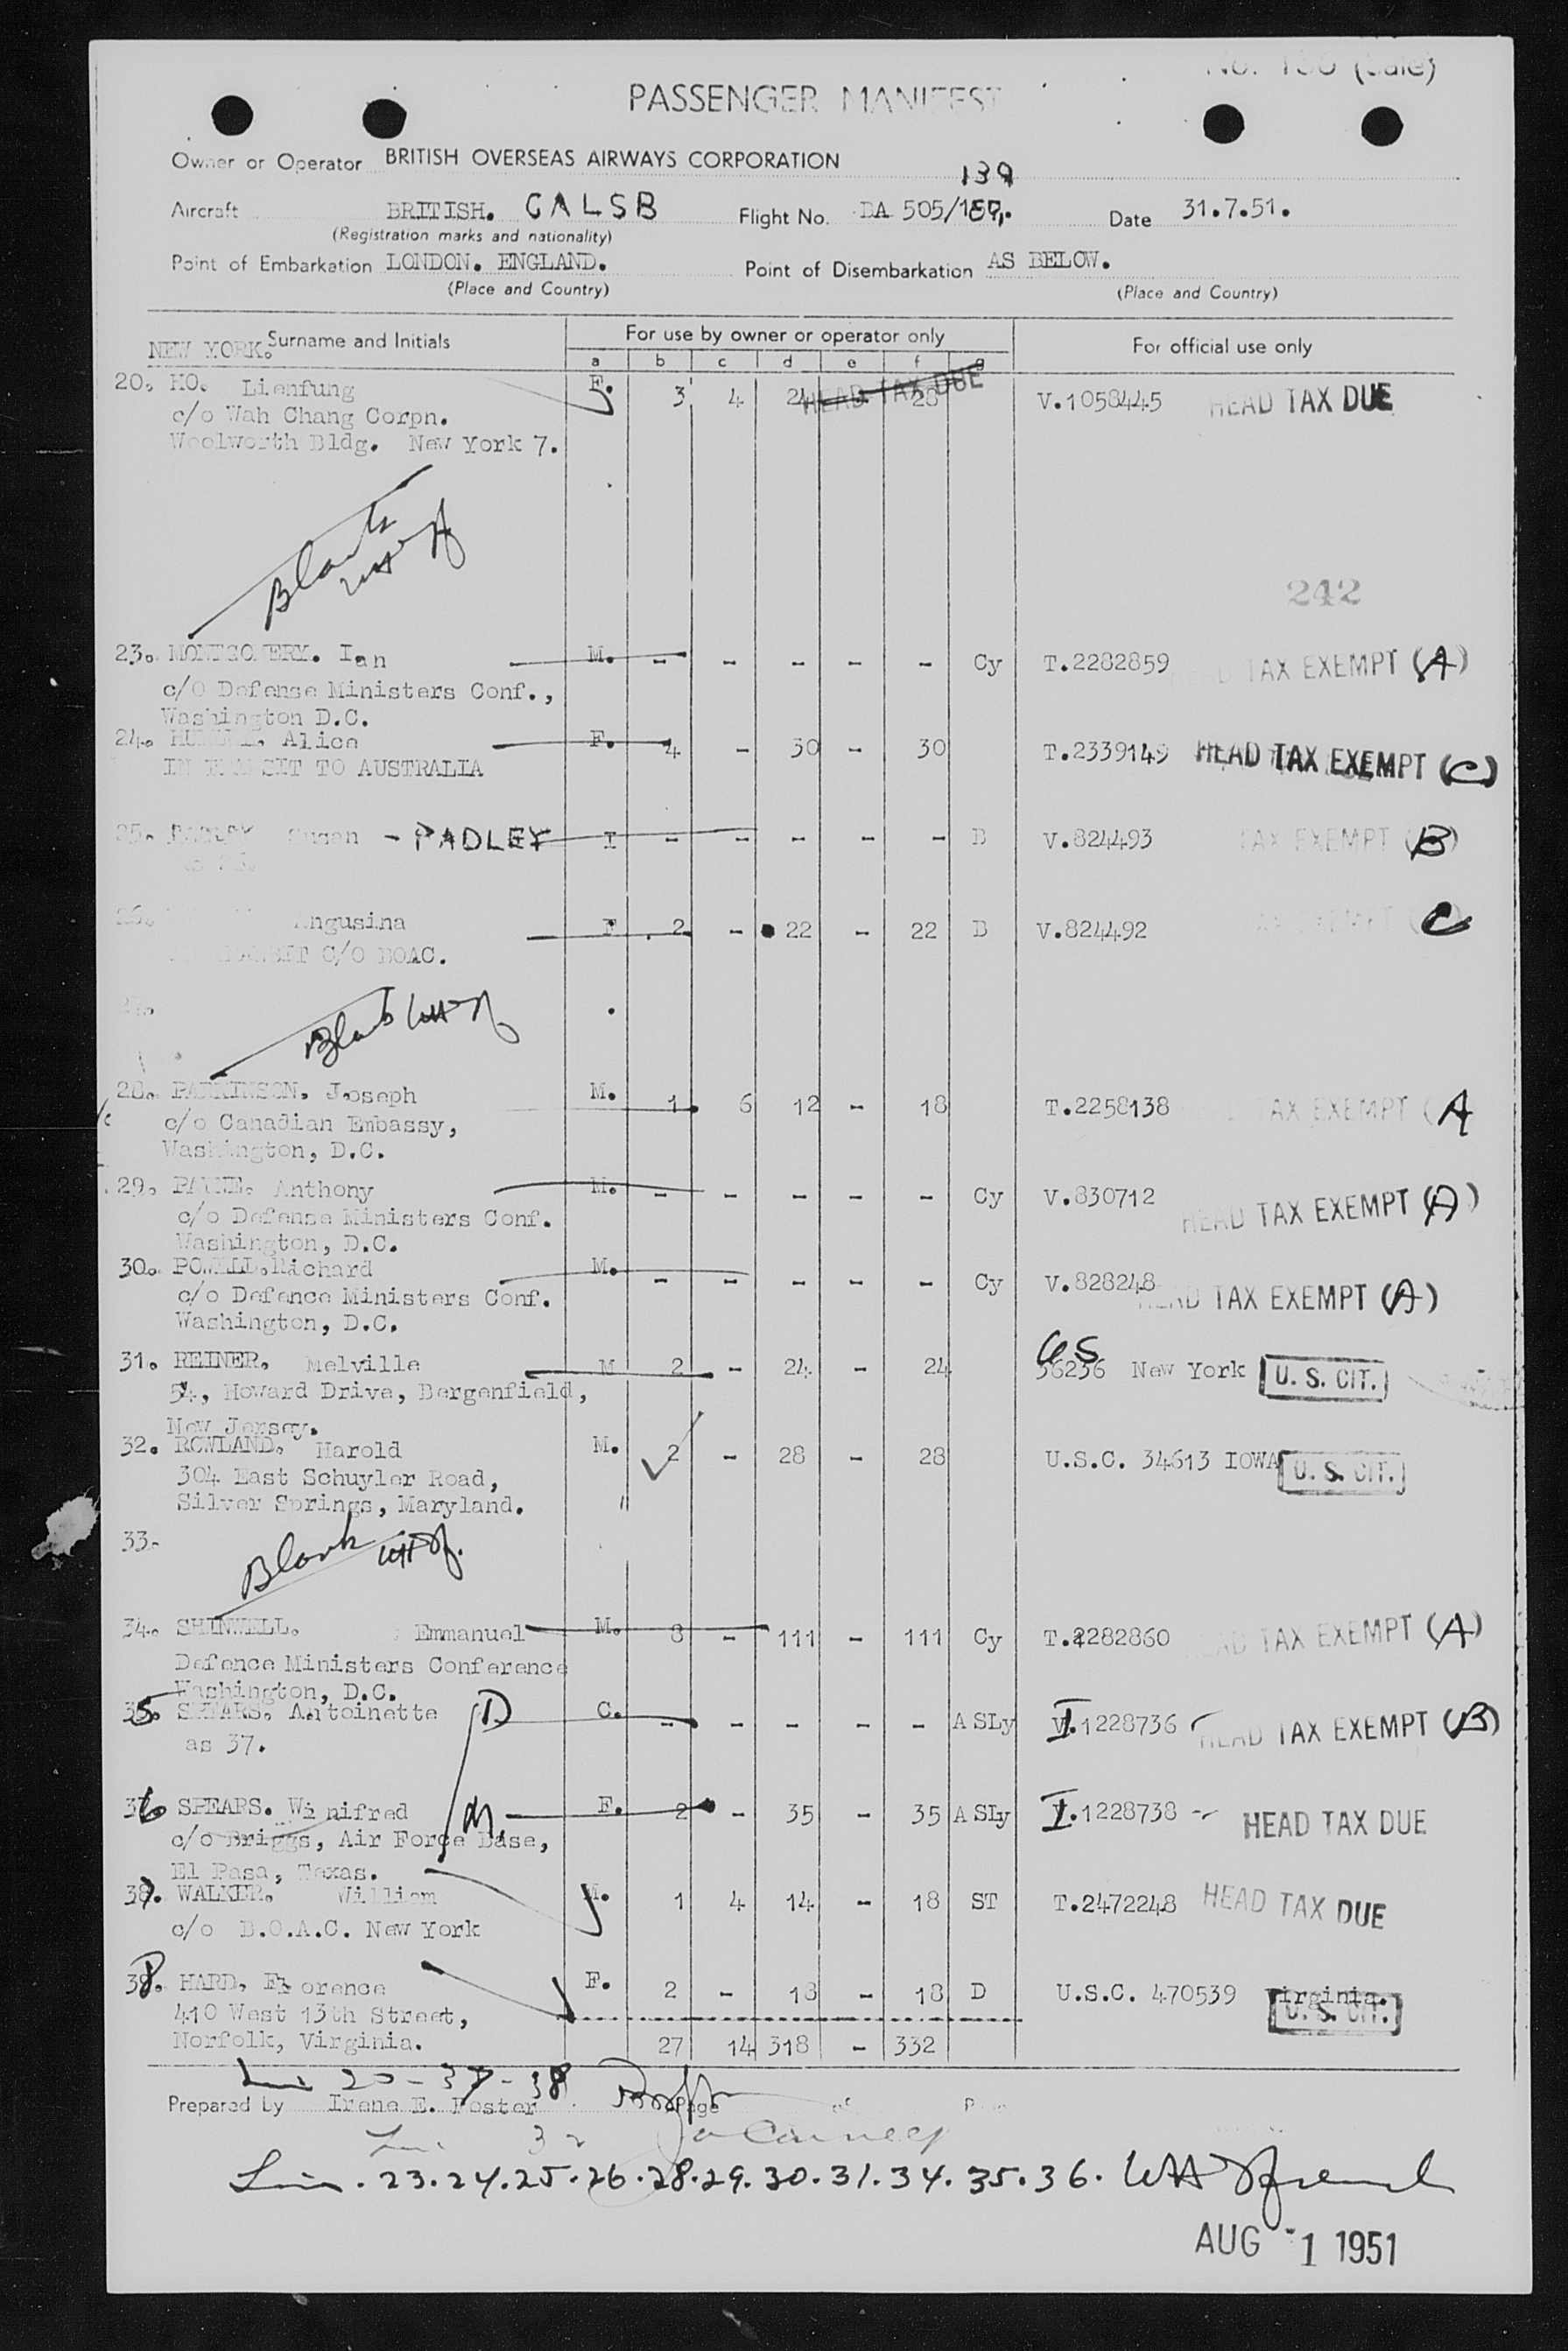 PASSENGER MANIFEST
Owner or Operator BRITISH OVERSEAS AIRWAYS CORPORATION
139
Aircraft BRITISH. GALSB Flight No. BA 505/ Date 31.7.51.
(Registration marks and nationality)
Point of Embarkation LONDON. ENGLAND. Point of Disembarkation AS BELOW.
(Place and Country) (Place and Country)
Surname and Initials For use by owner or operator only For official use only
NEW YORK.
a b c d e f g
20. HO. Lienfung F. 3 4 24 28 HEAD TAX DUE V.1058445 HEAD TAX DUE
c/o Wah Chang Corpn.
Woolworth Bldg. New York 7.
Blank
242
23. MONTGOMERY. Ian M. - - - - - Cy T.2282859 HEAD TAX EXEMPT (A)
c/O Defense Ministers Conf.,
Washington D.C.
24. Alice F. 4 - 30 - 30 T.2339149 HEAD TAX EXEMPT (C)
IN TRANSIT TO AUSTRALIA
25. Susan - PADLEY I - - - - - B V.824493 TAX EXEMPT (B)
26. Angusina F 2 - 22 - 22 B V.824492 C
TRANSIT C/O BOAC.
Blank
28. PARKINSON. Joseph M. 1 6 12 - 18 T.2258138 TAX EXEMPT (A
c/o Canadian Embassy,
Washington, D.C.
29. PAYNE. Anthony M. - - - - - Cy V.830712 HEAD TAX EXEMPT (A)
c/o Defense Ministers Conf.
Washington, D.C.
30. POWELL. Richard M. - - - - - Cy V.828248 HEAD TAX EXEMPT (A)
c/o Defence Ministers Conf.
Washington, D.C.
31. REINER. Melville M 2 - 24 - 24 36236 New York U. S. CIT.
54, Howard Drive, Bergenfield,
New Jersey.
32. ROWLAND. Harold M. 2 - 28 - 28 U.S.C. 34613 IOWA U. S. CIT.
304 East Schuyler Road,
Silver Springs, Maryland.
33.
Blank
34. SHINWELL. Emmanuel M. 8 - 111 - 111 Cy T.2282860 HEAD TAX EXEMPT (A)
Defence Ministers Conference
Washington, D.C.
35. SPEARS. Antoinette D C. - - - - - A SLy I.1228736 HEAD TAX EXEMPT (B)
as 37.
36 SPEARS. Winifred M. F. 2 - 35 - 35 A SLy I.1228738 HEAD TAX DUE
c/o Briggs, Air Force Base,
El Pasa, Texas.
37. WALKER. William M. 1 4 14 - 18 ST T.2472248 HEAD TAX DUE
c/o B.O.A.C. New York
38. HARD, Florence F. 2 - 18 - 18 D U.S.C. 470539 Virginia. U. S. CIT.
410 West 13th Street,
Norfolk, Virginia.
27 14 318 - 332
Lin 20-37-38
Prepared by Irene E. Foster Page
Lin 32
Lin. 23.24.25.26.28.29.30.31.34.35.36.
AUG -1 1951